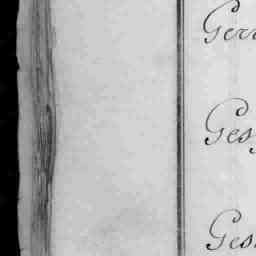 Gerr
Ges
Ges